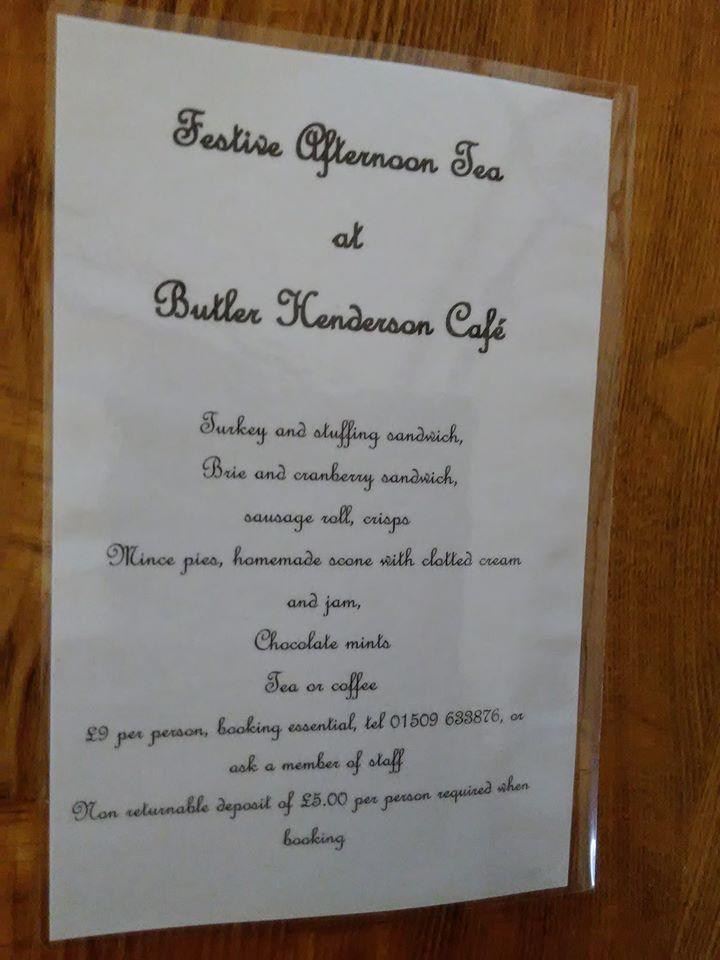 Festive Afternoon Tea
at
Butler Henderson Café
Turkey and stuffing sandwich,
Brie and cranberry sandwich,
sausage roll, crisps
Mince pies, homemade scone with clotted cream
and jam,
Chocolate mints
Tea or coffee
£9 per person, booking essential, tel 01509 633876, or
ask a member of staff
Non returnable deposit of £5.00 per person required when
booking